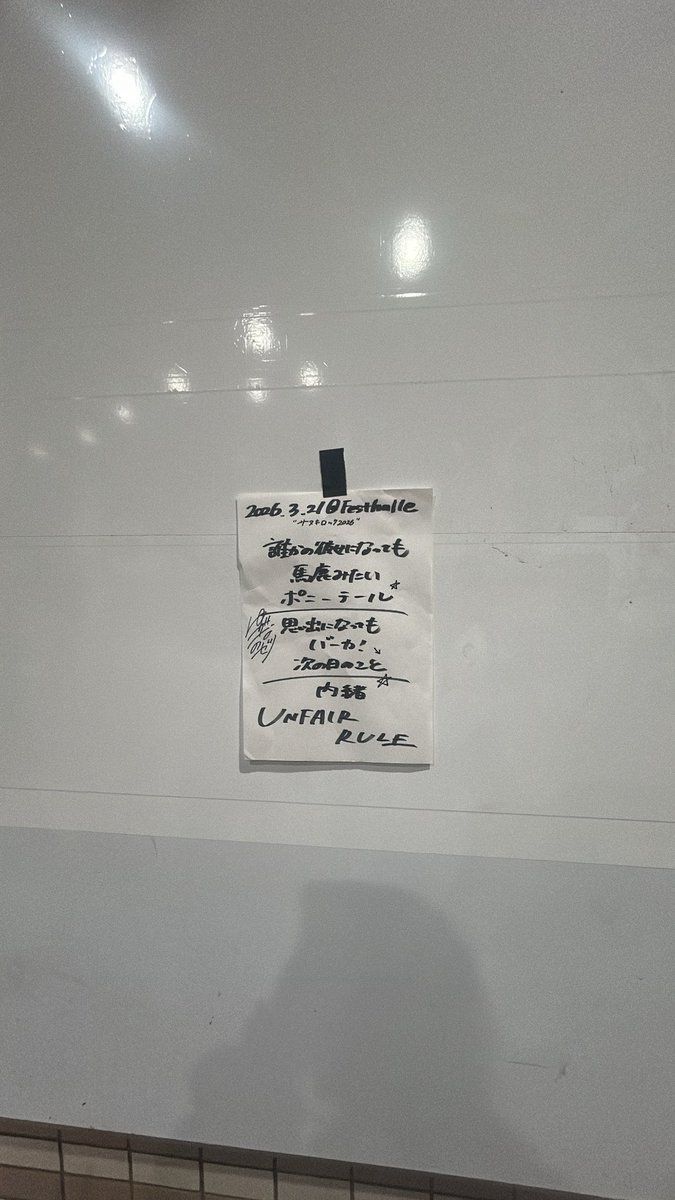 2026.3.21@Festhalle
"サヌキロック2026"
誰かの彼女になっても
馬鹿みたい
ポニーテール☆
思い出になっても
バーカ!
次の日のこと
内緒
UNFAIR
RULE